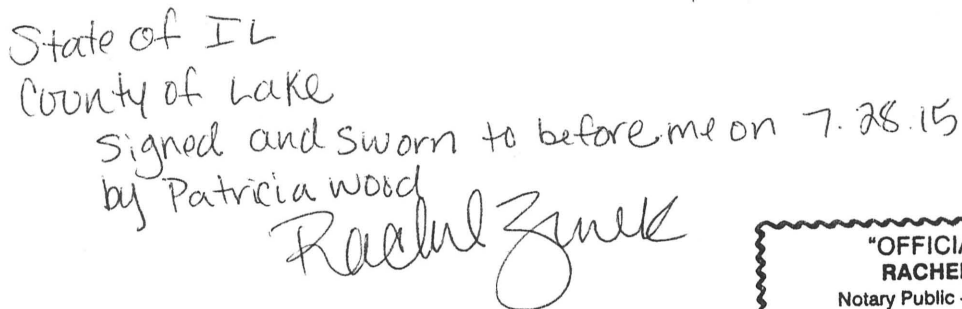 State of IL
County of Lake
signed and sworn to before me on 7.28.15
by Patricia Wood
Rachel
"OFFICIA
RACHEL
Notary Public -